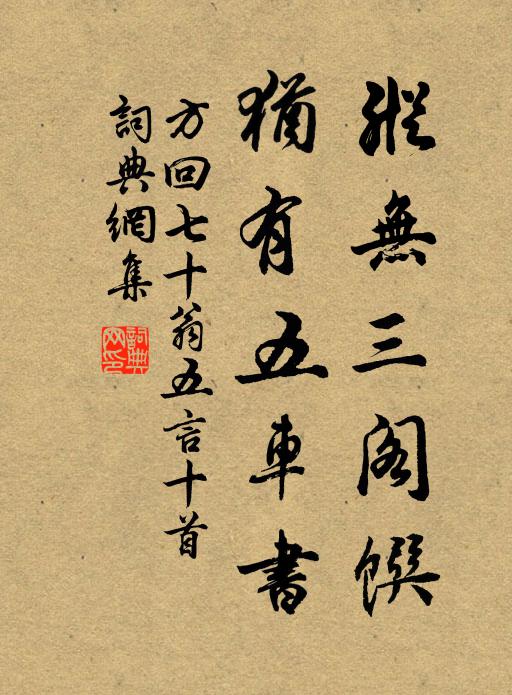 縱無三閣饌
猶有五車書
方回七十翁五言十首
詞典網集
詞典网印